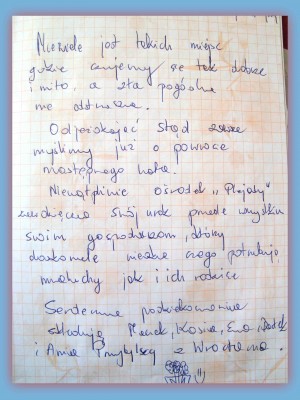 Niewiele jest takich miejsc
gdzie czujemy się tak dobrze
i miło, a zła pogoda
nie odstrasza.
Odjeżdżając stąd zawsze
myślimy już o powrocie
następnego lata.
Niewątpliwie ośrodek "Plejady"
zawdzięcza swój urok przede wszystkim
swoim gospodarzom, którzy
doskonale wiedzą czego potrzebują
maluchy jak i ich rodzice
Serdeczne podziękowania
składają Marek, Kasia, Ewa,
i Anna z Wrocławia.